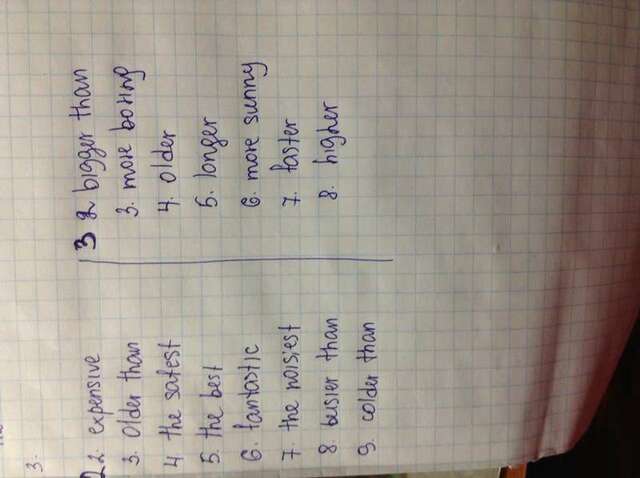 3.
2 2. expensive
3. Older than
4 the safest
5. the best
6. fantastic
7. the noisiest
8. busier than
9. colder than
3 2 bigger than
3. more boring
4. older
5. longer
6. more sunny
7. faster
8. higher